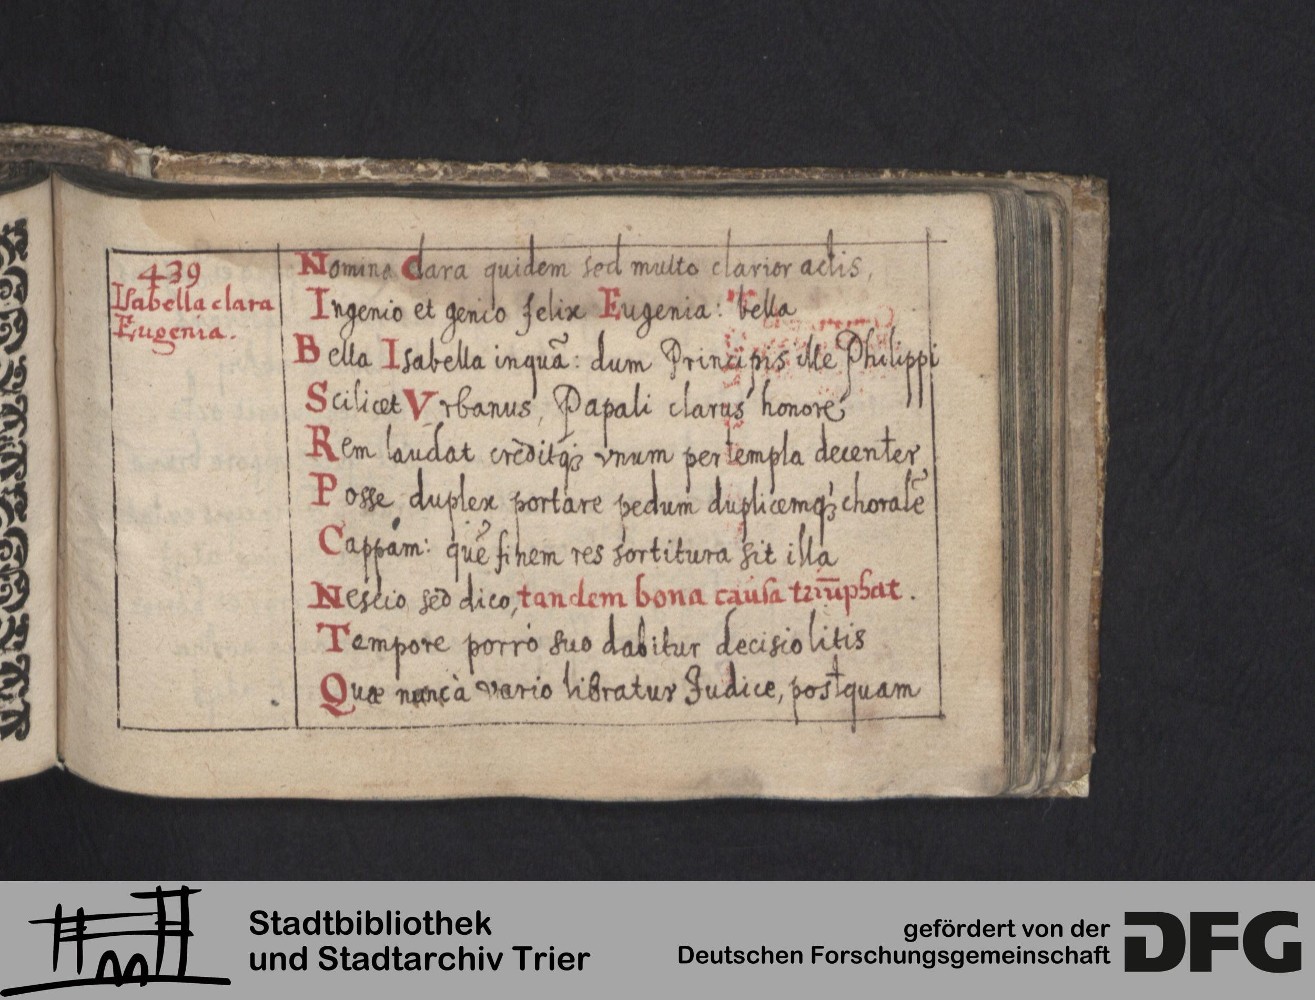 439
Isabella clara
Eugenia.
Nomina Clara quidem sed multo clarior actis,
Ingenio et genio felix Eugenia: bella
Bella Isabella inquā: dum Principis ille Philippi
Scilicet Vrbanus, Papali clarus honore
Rem laudat creditq́ꝫ vnum per templa decenter
Posse duplex portare pedum duplicemq́ꝫ choralē
Cappam: quē finem res sortitura sit illa
Nescio sed dico, tandem bona causa triūphat.
Tempore porró suo dabitur decisio litis
Quæ nuncà vario libratur Judice, postquam
Stadtbibliothek
und Stadtarchiv Trier
gefördert von der
Deutschen Forschungsgemeinschaft
DFG